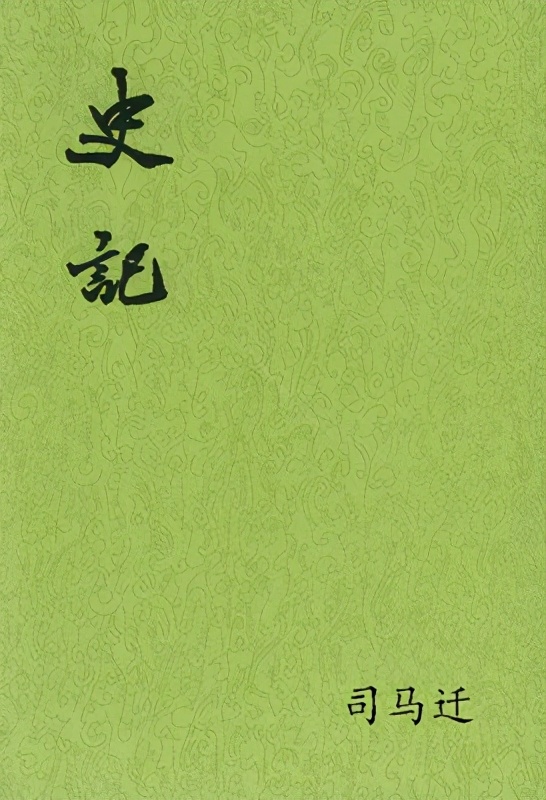 史記
司马迁